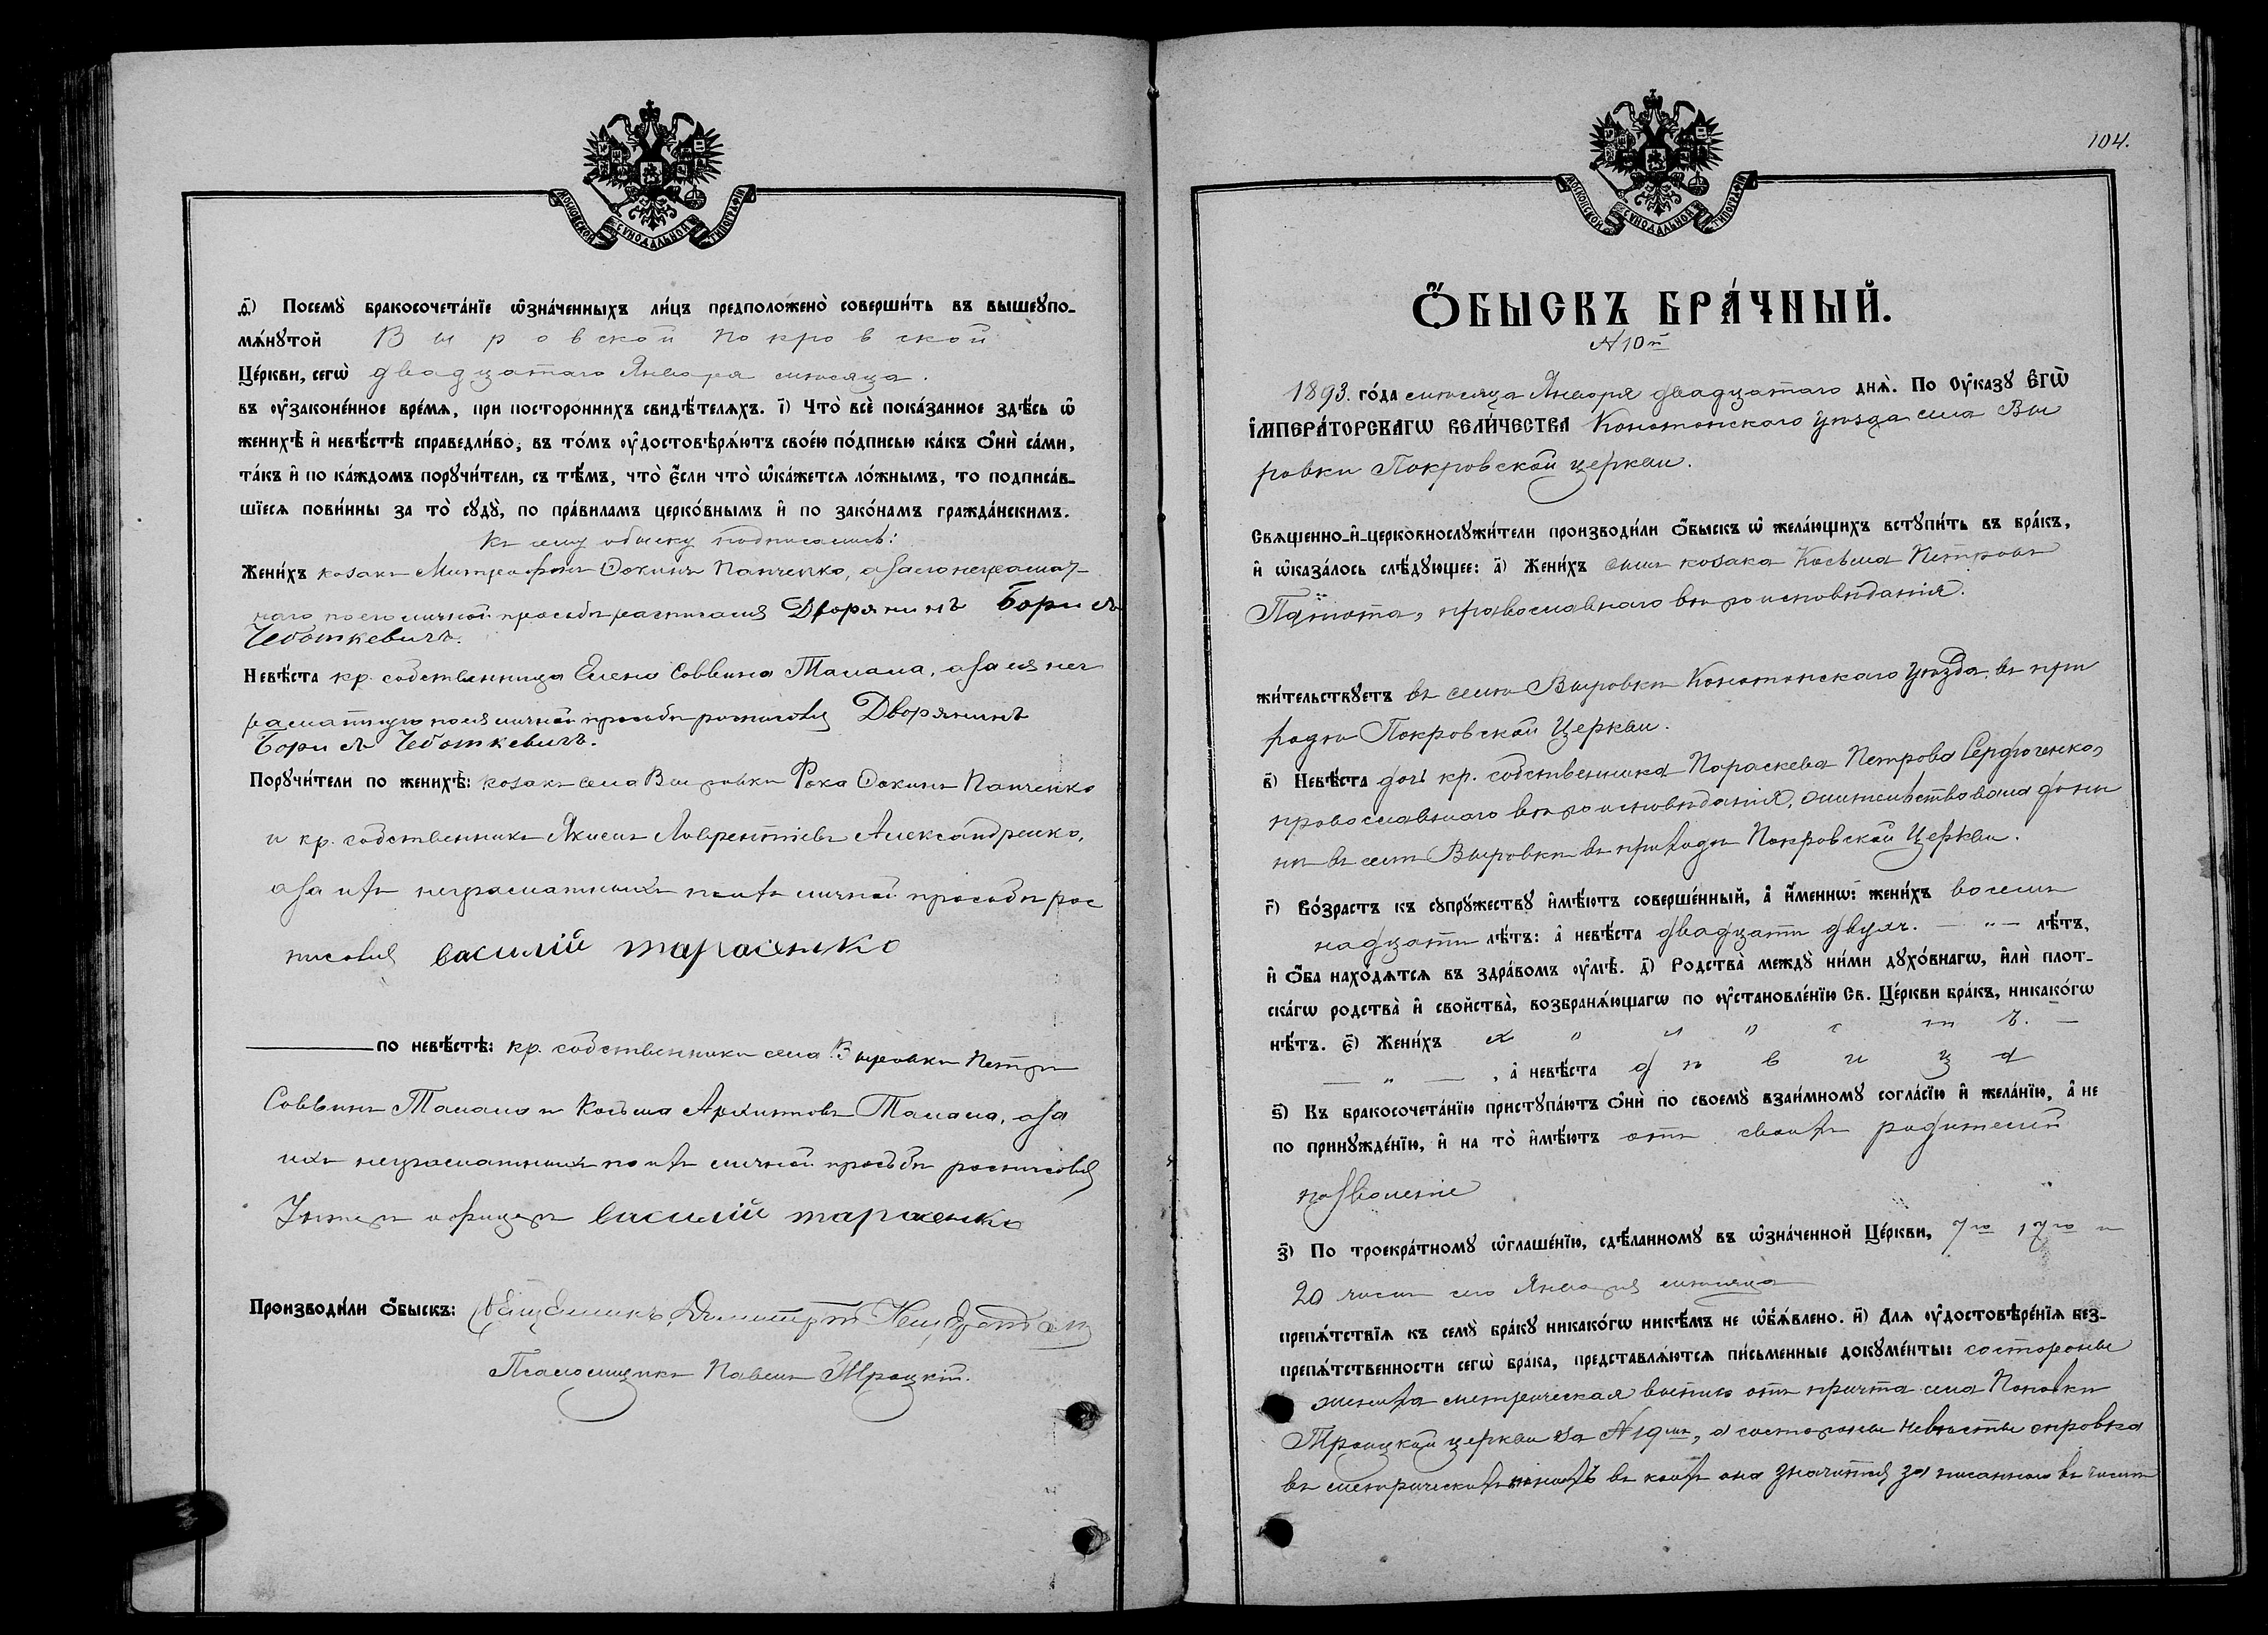 МОСКОВСКОЙ СѴНОДАЛЬНОЙ ТИПОГРАФІИ
д҃і) Посемꙋ̀ бракосочета́нїе ѡ҆зна́ченныхъ ли́цъ предположено̀ соверши́ть въ вышеꙋпо-
мѧ́нꙋтой Выровской Покровской
Це́ркви, сегѡ̀ двадцатаго Января мѣсяца.
въ ᲂу҆законе́нное вре́мѧ, при посторо́ннихъ свидѣ́телѧхъ. і҃) Что̀ всѐ пока́занное здѣ́сь ѡ҆
женихѣ̀ и҆ невѣ́стѣ справедли́во, въ то́мъ ᲂу҆достовѣрѧ́ютъ свое́ю по́дписью ка́къ ѻ҆нѝ са́ми,
та́къ и҆ по ка́ждомъ порꙋчи́тели, съ тѣ́мъ, что̀ є҆́сли что̀ ѡ҆ка́жетсѧ ло́жнымъ, то подписа́в-
шїесѧ пови́нны за то̀ сꙋдꙋ̀, по пра́виламъ церко́внымъ и҆ по зако́намъ гражда́нскимъ.
Къ сему обыску подписались:
Жени́хъ козакъ Митрофанъ Ѳокинъ Панченко, а за него неграмот-
наго по его личной просьбѣ расписался Дворянинъ Борисъ
Чеботкевичъ.
Невѣ́ста кр. собственница Елена Саввина Талала, а за нея нег
рамотную по ея личной просьбѣ росписовся Дворянинъ
Борисъ Чеботкевичъ.
Порꙋчи́тели по женихѣ̀: козакъ села Выровки Фока Ѳокинъ Панченко
и кр. собственникъ Якимъ Лаврентіевъ Александренко,
а за ихъ неграмотныхъ по ихъ личной просьбѣ рос
писовся василій тарасенко
по невѣ́стѣ: кр. собственники села Выровки Петръ
Саввинъ Талала и Косьма Архиповъ Талала, а за
ихъ неграмотныхъ по ихъ личной просьбѣ росписовся
Унтеръ офицеръ василій тарасенко
Производи́ли ѻ҆́быскъ: Священникъ Димитрій
Псаломщикъ Павелъ Троцкій.
104.
МОСКОВСКОЙ СѴНОДАЛЬНОЙ ТИПОГРАФІИ
Ѻ҆́БЫСКЪ БРА́ЧНЫЙ.
№ 10й
1893. го́да мѣсяца Января двадцатаго днѧ̀. По Оу҆ка́зꙋ Е҆ГѠ̀
І҆МПЕРА́ТОРСКАГѠ ВЕЛИ́ЧЕСТВА Конотопскаго Уѣзда села Вы
ровки Покровской церкви.
Свѧще́нно-и҆-церковнослꙋжи́тели производи́ли ѻ҆́быскъ ѡ҆ жела́ющихъ встꙋпи́ть въ бра́къ,
и҆ ѡ҆каза́лось слѣ́дꙋющее: а҃) Жени́хъ сынъ козака Косьма Петровъ
православнаго вѣроисповѣданія.
жи́тельствꙋетъ въ селѣ Выровки Конотопскаго Уѣзда. въ при
ходѣ Покровской Церкви.
в҃) Невѣ́ста дочь кр. собственника Параскева Петрова Сердюченко,
православнаго вѣроисповѣданія, жительствовала донынѣ
въ селѣ Выровкѣ въ приходѣ Покровской Церкви.
г҃) Во́зрастъ къ сꙋпрꙋ́жествꙋ и҆мѣ́ютъ соверше́нный, а҆ и҆́меннѡ: жени́хъ восем
надцати лѣ́тъ: а҆ невѣ́ста двадцати двухъ. — „ — лѣ́тъ,
и҆ ѻ҆́ба нахо́дѧтсѧ въ здра́вомъ ᲂу҆мѣ̀. д҃) Родства̀ междꙋ̀ ни́ми дꙋхо́внагѡ, и҆лѝ плот-
ска́гѡ родства̀ и҆ сво́йства̀, возбранѧ́ющагѡ по ᲂу҆становле́нїю Св. Це́ркви бра́къ, никако́гѡ
нѣ́тъ. є҃) Жени́хъ холостъ. —
— „ — , а҆ невѣ́ста дѣвица
ѕ҃) Къ бракосочета́нїю пристꙋпа́ютъ ѻ҆нѝ по своемꙋ̀ взаи́мномꙋ согла́сїю и҆ жела́нїю, а҆ не
по принꙋжде́нїю, и҆ на то̀ и҆мѣ́ютъ отъ своихъ родителей
позволеніе
з҃) По троекра́тномꙋ ѡ҆глаше́нїю, сдѣ́ланномꙋ въ ѡ҆зна́ченной Це́ркви, 7го 17го и
20 чиселъ сего Января мѣсяца
препѧ́тствїѧ къ семꙋ̀ бра́кꙋ никако́гѡ никѣ́мъ не ѡ҆б̾ѧ́влено. и҃) Длѧ ᲂу҆достовѣре́нїѧ без-
препѧ́тственности сегѡ̀ бра́ка, представлѧ́ютсѧ пи́сьменные докꙋме́нты: со стороны
жениха метрическая выпись отъ причта села Поповки
Троицкой церкви за № 19мъ, а со стороны невѣсты справка
въ метрическихъ книгахъ въ коихъ она значится записанною въ числѣ